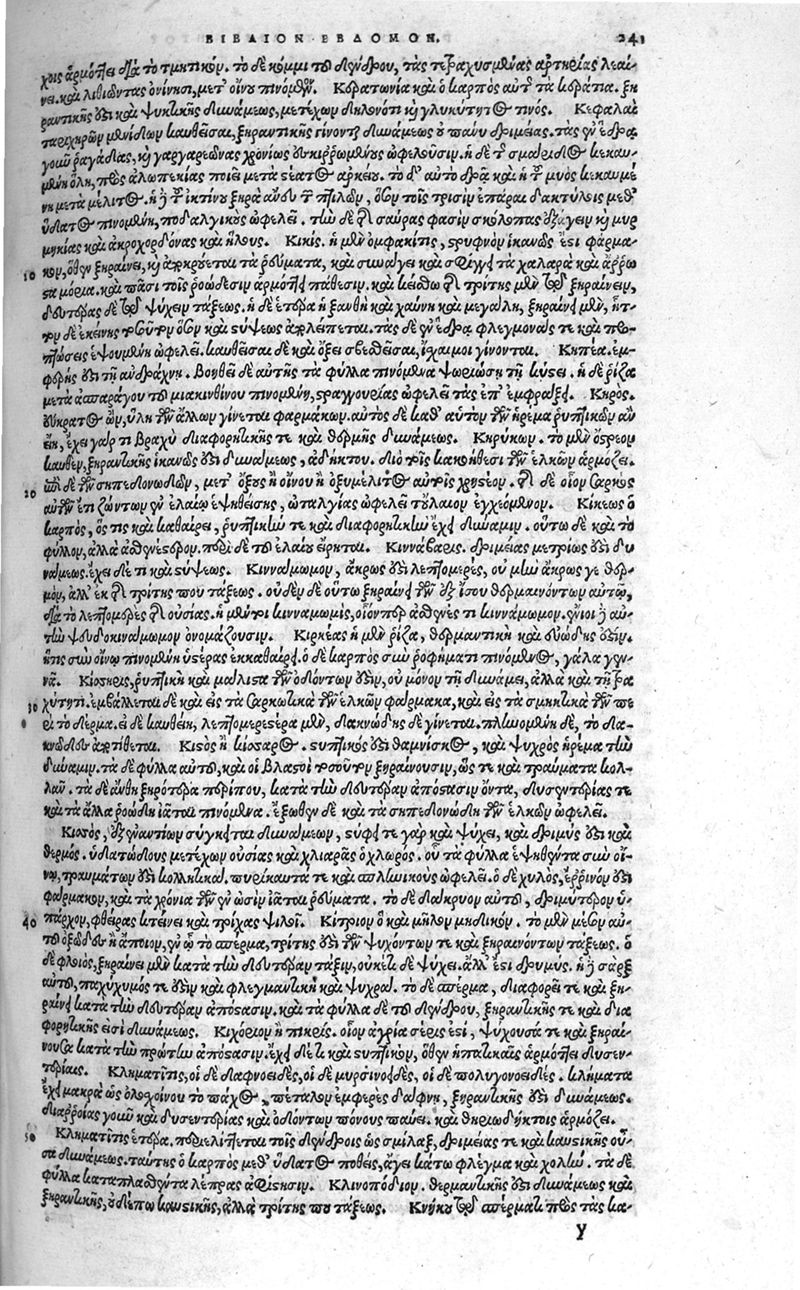 ΒΙΒΛΙΟΝ ΕΒΔΟΜΟΝ. 241
χοις ἁρμόττει διὰ τὸ τμητικόν. τὸ δὲ κόμμι τοῦ δένδρου, τὰς τετραχυσμένας ἀρτηρίας λεαί-
νει. καὶ λιθιῶντας ὀνίνησι, μετ' οἴνου πινόμενον. Κερατωνία καὶ ὁ καρπὸς αὐτῆς τὰ κεράτια. ξη
ραντικῆς ἐστι καὶ ψυκτικῆς δυνάμεως, μετέχων δηλονότι καὶ γλυκύτητος τινός. Κεφαλαὶ
ταριχηρῶν μαινίδων καυθεῖσαι, ξηραντικῆς γίνονται δυνάμεως οὐ πάνυ δριμείας. τὰς ἐν ἕδρᾳ
γοῦν ῥαγάδας, καὶ γαργαρεῶνας χρονίως ἐσκιρρωμένους ὠφελοῦσιν. ἡ δὲ τῆς σμαρίδος κεκαυ-
μένη ὅλη, πρὸς ἀλωπεκίας ποιεῖ μετὰ στέατος ἀρκείου. τὸ δ' αὐτὸ δρᾷ καὶ ἡ τοῦ μυὸς κεκαυμέ
νη μετὰ μέλιτος. ἡ δὲ τοῦ ἰκτίνου ξηρὰ ἄνευ τῶν πτίλων, ὅσον τοῖς τρισὶν ἐπᾶραι δακτύλοις μεθ'
ὕδατος πινομένη, ποδαλγικοὺς ὠφελεῖ. τὴν δὲ τῆς σαύρας φασὶν σκόλοπας ἐξάγειν καὶ μυρ
μηκίας καὶ ἀκροχορδόνας καὶ ἥλους. Κικίς. ἡ μὲν ὀμφακίτις, στρυφνὸν ἱκανῶς ἐστι φάρμα-
10 κον, ὅθεν ξηραίνει, καὶ ἀποκρούεται τὰ ῥεύματα, καὶ συνάγει καὶ σφίγγει τὰ χαλαρὰ καὶ ἄρρω
στα μόρια. καὶ πᾶσι τοῖς ῥοώδεσιν ἁρμόττει πάθεσιν. καὶ κεῖσθω τῆς τρίτης μὲν τοῦ ξηραίνειν,
δευτέρας δὲ τοῦ ψύχειν τάξεως. ἡ δὲ ἑτέρα ἡ ξανθὴ καὶ χαύνη καὶ μεγάλη, ξηραίνει μὲν, ἧτ-
τον δὲ ἐκείνης τοσοῦτον ὅσον καὶ στύψεως ἀπολείπεται. τὰς δὲ ἐν ἕδρᾳ φλεγμονάς τε καὶ προ-
πτώσεις ἑψουμένη ὠφελεῖ. καυθεῖσαι δὲ καὶ ὄξει σβεσθεῖσαι, ἴσχαιμοι γίνονται. Κηπέα. ἐμ-
φερής ἐστι τῇ ἀνδράχνῃ. βοηθεῖ δὲ αὐτῆς τὰ φύλλα πινόμενα ψωριώσῃ τῇ κύστει. ἡ δὲ ῥίζα
μετὰ ἀσπαράγου τοῦ μιακινθίνου πινομένη, στραγγουρίας ὠφελεῖ τὰς ἐπ' ἐμφράξει. Κηρός.
εὔκρατος ὢν, ὕλη τῶν ἄλλων γίνεται φαρμάκων. αὐτὸς δὲ καθ' αὑτὸν τῶν ἠρέμα ῥυπτικῶν ἂν
εἴη, ἔχει γάρ τι βραχὺ διαφορητικῆς τε καὶ θερμῆς δυνάμεως. Κηρύκων. τὸ μὲν ὄστρεον
καυθὲν, ξηραντικῆς ἱκανῶς ἐστι δυνάμεως, ἀδήκτου. διὸ τοῖς κακοήθεσι τῶν ἑλκῶν ἁρμόζει.
20 ἐπὶ δὲ τῶν σηπεδονωδῶν, μετ' ὄξους ἢ οἴνου ἢ ὀξυμέλιτος αὐτοῖς χρηστέον. τῆς δὲ οἷον σαρκὸς
αὐτῶν ἔτι ζώντων ἐν ἐλαίῳ ἑψηθείσης, ὠταλγίας ὠφελεῖ τὸ ἔλαιον ἐγχεόμενον. Κίκεως ὁ
καρπὸς, ὅς τις καὶ καθαίρει, ῥυπτικήν τε καὶ διαφορητικὴν ἔχει δύναμιν. οὕτω δὲ καὶ τὸ
φύλλον, ἀλλὰ ἀσθενέστερον. περὶ δὲ τοῦ ἐλαίου εἴρηται. Κιννάβαρις. δριμείας μετρίως ἐστὶ δυ
νάμεως. ἔχει δέ τι καὶ στύψεως. Κιννάμωμον, ἄκρως ἐστὶ λεπτομερὲς, οὐ μὴν ἄκρως γε θερ-
μὸν, ἀλλ' ἐκ τῆς τρίτης που τάξεως. οὐδὲν δὲ οὕτω ξηραίνει τῶν ἐξ ἴσου θερμαινόντων αὐτῷ,
διὰ τὸ λεπτομερὲς τῆς οὐσίας. ἡ μέντοι κινναμωμὶς, οἷόνπερ ἀσθενές τι κιννάμωμον. ἔνιοι δὲ αὐ-
τὴν ψευδοκινάμωμον ὀνομάζουσιν. Κιρκέας ἡ μὲν ῥίζα, θερμαντικὴ καὶ εὐώδης ἐστίν.
ἥτις σὺν οἴνῳ πινομένη ὑστέρας ἐκκαθαίρει. ὁ δὲ καρπὸς σὺν ῥοφήματι πινόμενος, γάλα γεν-
νᾷ. Κίσηρις, ῥυπτικὴ καὶ μάλιστα τῶν ὀδόντων ἐστὶν, οὐ μόνον τῇ δυνάμει, ἀλλὰ καὶ τῇ τρα
30 χύτητι. ἐμβάλλεται δὲ καὶ εἰς τὰ σαρκωτικὰ τῶν ἑλκῶν φάρμακα, καὶ εἰς τὰ σμηκτικὰ τῶν πε
ρὶ τὸ δέρμα. εἰ δὲ καυθείη, λεπτομερεστέρα μὲν, δακνώδης δὲ γίνεται. πλυνομένη δὲ, τὸ δα-
κνῶδες ἀποτίθεται. Κισσὸς ἢ κίσσαρος. στυπτικός ἐστι θαμνίσκος, καὶ ψυχρὸς ἠρέμα τὴν
δύναμιν. τὰ δὲ φύλλα αὐτοῦ, καὶ οἱ βλαστοὶ τοσοῦτον ξηραίνουσιν, ὥς τε καὶ τραύματα κολ-
λᾶν. τὰ δὲ ἄνθη ξηρότερα περίπου, κατὰ τὴν δευτέραν ἀπόστασιν ὄντα, δυσεντερίας τε
καὶ τὰ ἄλλα ῥοώδη ἰᾶται πινόμενα. ἔξωθεν δὲ καὶ τὰ σηπεδονώδη τῶν ἑλκῶν ὠφελεῖ.
Κισσὸς, ἐξ ἐναντίων σύγκειται δυνάμεων, στύφει τε γὰρ καὶ ψύχει, καὶ δριμύς ἐστι καὶ
θερμός. ὑδατώδους μετέχων οὐσίας καὶ χλιαρᾶς ὁ χλωρός. οὗ τὰ φύλλα ἑψηθέντα σὺν οἴ-
νῳ, τραυμάτων ἐστὶ κολλητικά. πυρίκαυτά τε καὶ σπληνικοὺς ὠφελεῖ. ὁ δὲ χυλὸς, ἔρρινόν ἐστι
φάρμακον, καὶ τὰ χρόνια τῶν ἐν ὠσὶν ἰᾶται ῥεύματα. τὸ δὲ δάκρυον αὐτοῦ, δριμύτερον ὑ-
40 πάρχον, φθεῖρας κτείνει καὶ τρίχας ψιλοῖ. Κίτριον ὃ καὶ μῆλον μηδικόν. τὸ μὲν μέσον αὐ-
τοῦ ὀξῶδες ἢ ἄποιον, ἐν ᾧ τὸ σπέρμα, τρίτης ἐστὶ τῶν ψυχόντων τε καὶ ξηραινόντων τάξεως. ὁ
δὲ φλοιὸς, ξηραίνει μὲν κατὰ τὴν δευτέραν τάξιν, οὐκέτι δὲ ψύχει. ἀλλ' ἔστι δριμύς. ἡ δὲ σὰρξ
αὐτοῦ, παχύχυμός τε ἐστὶν καὶ φλεγμαντικὴ καὶ ψυχρά. τὸ δὲ σπέρμα, διαφορεῖ τε καὶ ξη-
ραίνει κατὰ τὴν δευτέραν ἀπόστασιν. καὶ τὰ φύλλα δὲ τοῦ δένδρου, ξηραντικῆς τε καὶ δια
φορητικῆς εἰσι δυνάμεως. Κιχόριον ἢ πικρίς. οἷον ἀγρία σέρις ἐστὶ, ψύχουσά τε καὶ ξηραί-
νουσα κατὰ τὴν πρώτην ἀπόστασιν. ἔχει δέ τι καὶ στυπτικὸν, ὅθεν ἡπατικαῖς ἁρμόττει δυσεν-
τερίαις. Κληματίτις, οἱ δὲ δαφνοειδὲς, οἱ δὲ μυρσινοειδὲς, οἱ δὲ πολυγονοειδές. κλήματα
ἔχει μακρὰ ὡς ὁλοσχοίνου τὸ πάχος, πέταλον ἐμφερὲς δάφνῃ, ξηραντικῆς ἐστὶ δυνάμεως.
διαρροίας γοῦν καὶ δυσεντερίας καὶ ὀδόντων πόνους παύει. καὶ θηριοδήκτοις ἁρμόζει.
50 Κληματίτις ἑτέρα. περιελίττεται τοῖς δένδροις ὡς σμίλαξ, δριμείας τε καὶ καυστικῆς οὖ-
σα δυνάμεως. ταύτης ὁ καρπὸς μεθ' ὕδατος ποθεὶς, ἄγει κάτω φλέγμα καὶ χολήν. τὰ δὲ
φύλλα καταπλασθέντα λέπρας ἀφίστησιν. Κλινοπόδιον. θερμαντικῆς ἐστι δυνάμεως καὶ
ξηραντικῆς, οὐδέπω καυστικῆς, ἀλλὰ τρίτης που τάξεως. Κνήκου τοῦ σπέρματι πρὸς τὰς κα-
Y